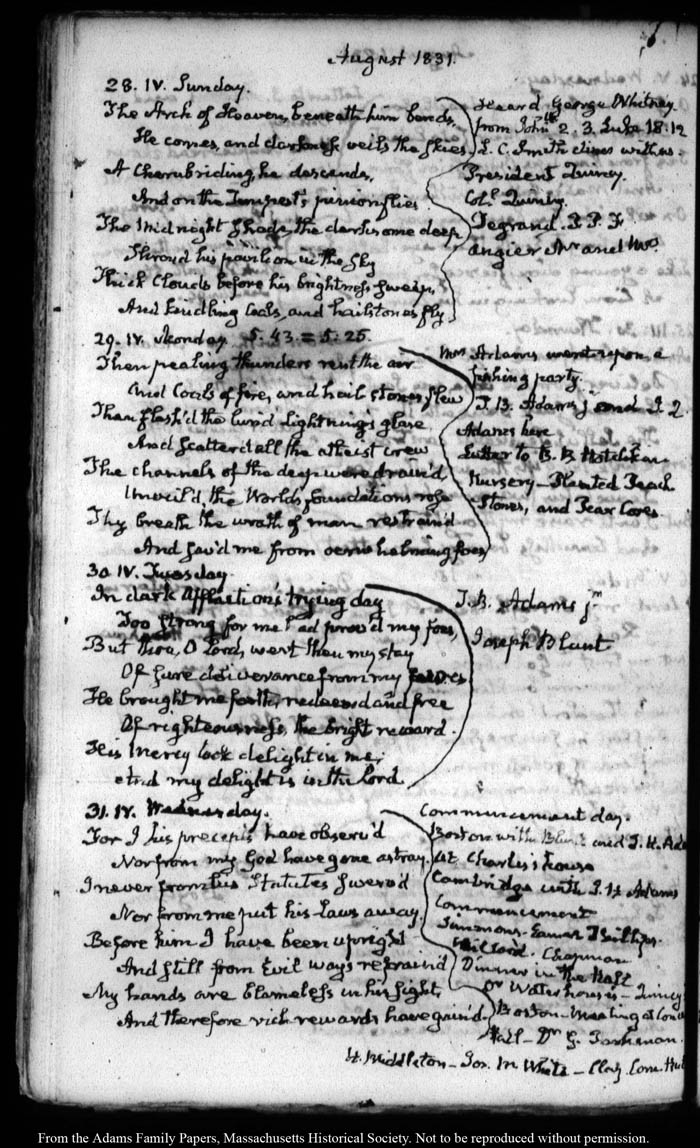 August 1831.
28. IV. Sunday.
The Arch of Heaven, beneath him bends,
He comes, and darkness veils the skies
A Cherub riding, he descends,
And on the Tempest's pinion flies
The Midnight Shade, the darksome deep
Shroud his pavilion in the Sky
Thick Clouds before his brightness sweep,
And kindling Coals, and hailstones fly
Heard George Whitney
from John 2. 3. Luke 18. 12
L. C. Smith dines with us.
President Quincy.
Col. Quincy.
Degrand. P. P. F.
Angier Mr and Mrs.
29. IV. Monday. 5. 43. = 5. 25.
Then pealing thunders rent the air
And Coals of fire, and hail stones flew
Then flash'd the lurid Lightning's glare
And scatter'd all the atheist crew
The channels of the deep were drain'd
Unveil'd, the World's foundations rose
Thy breath the wrath of man restrain'd
And sav'd me from overwhelming foes
Mrs Adams went upon a
fishing party.
T. B. Adams j and I. 2
Adams here
Letter to B. B
Nursery—Planted Peach
Stones, and Pear Cores.
30 IV. Tuesday.
In dark Affliction's trying day
Too strong for me had prov'd my foes,
But thou, O Lord, wert then my stay
Of sure deliverance from my
He brought me forth, redeem'd and free
Of righteousness, the bright reward.
His Mercy took delight in me,
And my delight is in the Lord.
T. B. Adams jr
Joseph Blunt
31. IV. Wednesday.
For I his precepts have observ'd
Nor from my God have gone astray.
I never from his Statutes swerv'd
Nor from me put his Laws away.
Before him I have been upright
And still from Evil ways refrain'd
My hands are blameless in his sight,
And therefore rich rewards have gain'd.
Commencement day.
Boston with Blunt and I. H. Ada
At Charles's house
Cambridge with I. H. Adams
Commencement
Simmons. Eames Phillips.
Chapman
Dinner in the Hall
Dr Waterhouse's—Quincy
Boston—Meeting at
Hall—Dr G. Parkman.
H. Middleton—Jos. M White—Clay. Com.
From the Adams Family Papers, Massachusetts Historical Society. Not to be reproduced without permission.